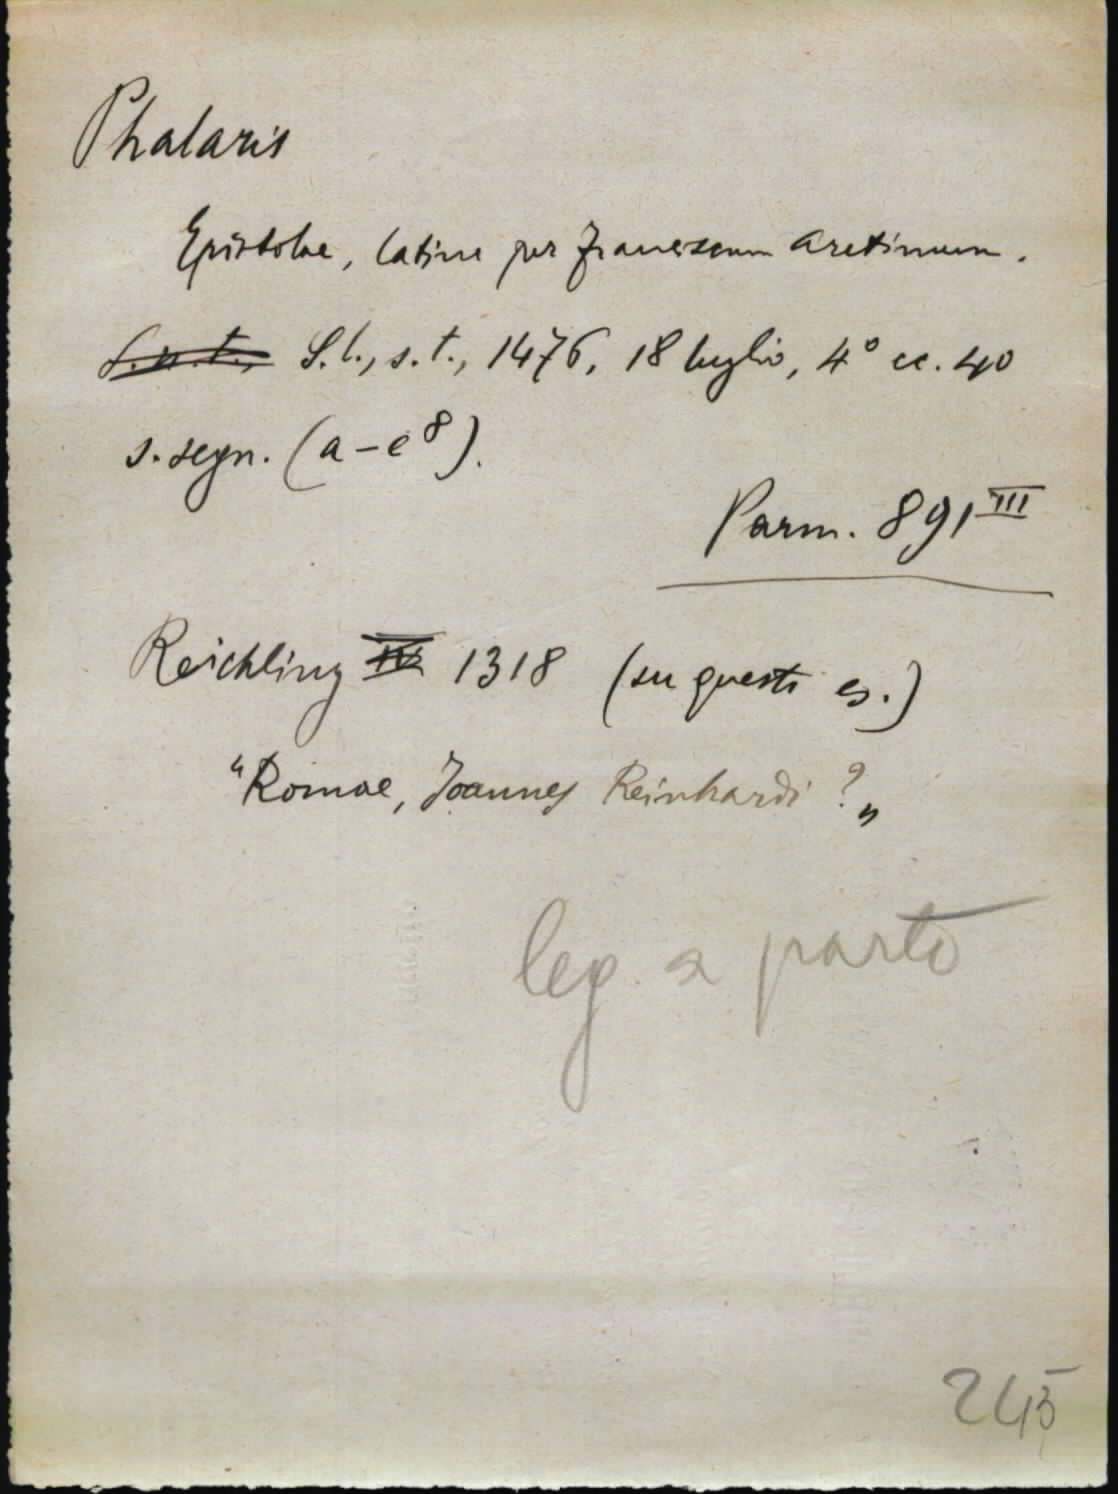 Phalaris
Epistolae, latine per Franciscum Aretinum.
S.n.t., S.l., s.t., 1476, 18 luglio, 4° cc. 40
s. segn. (a–e⁸).
Parm. 891 III
Reichling III 1318 (su questo es.)
"Romae, Joannes Reinhardi ?„
leg. a parte
245